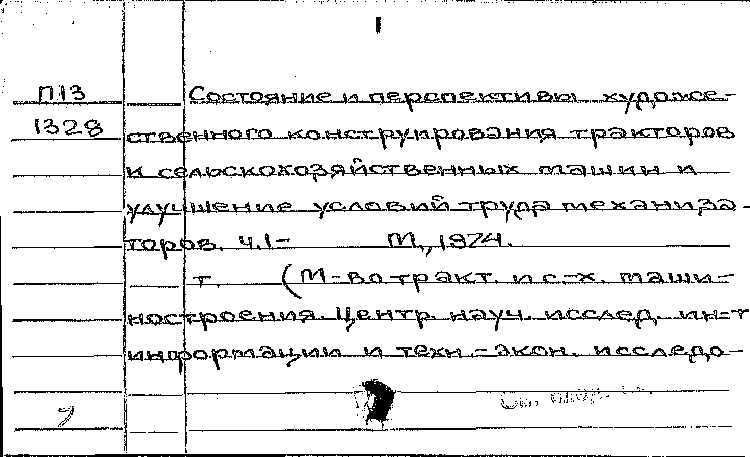 1
П13 Состояние и перспективы художе-
1328 ственного конструирования тракторов
и сельскохозяйственных машин и
улучшение условий труда механиза-
торов. Ч.1- М., 1974.
т. (М-во тракт. и с.-х. маши-
ностроения. Центр. науч. исслед. ин-т
информации и техн.-экон. исследо-
См. след.